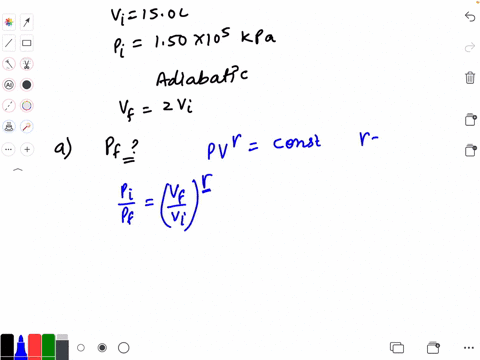 Vi = 15.0L
Pi = 1.50 × 10⁵ kPa
Adiabatic
Vf = 2Vi
a) Pf ? PVʳ = const r-
Pi/Pf = (Vf/Vi)ʳ